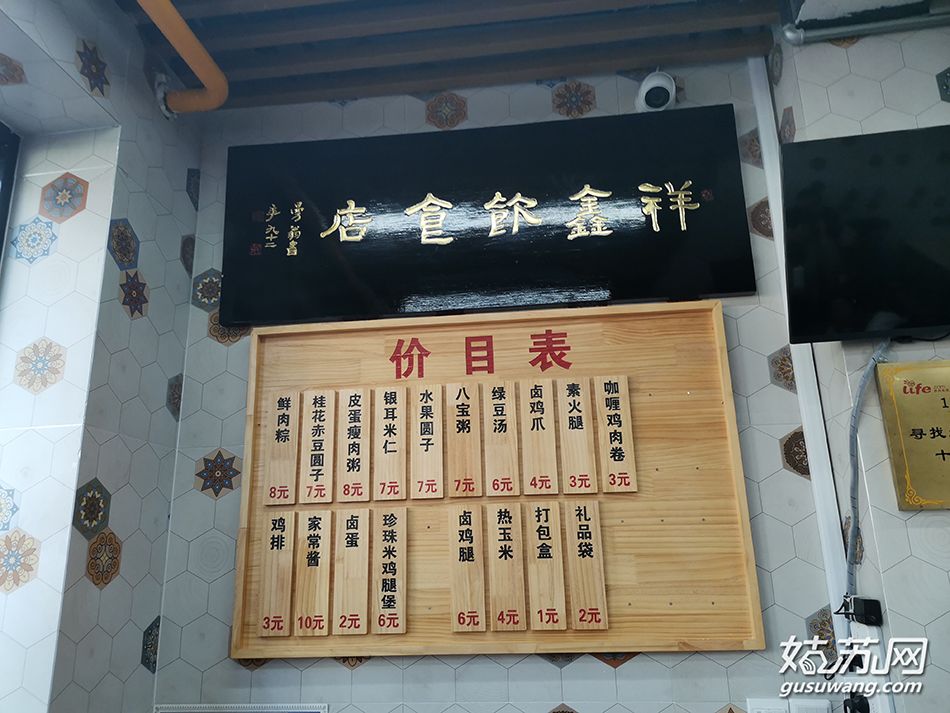 祥鑫飲食店
曼翁書
年九十二
价目表
咖喱鸡肉卷 3元
素火腿 3元
卤鸡爪 4元
绿豆汤 6元
八宝粥 7元
水果圆子 7元
银耳米仁 7元
皮蛋瘦肉粥 8元
桂花赤豆圆子 7元
鲜肉粽 8元
礼品袋 2元
打包盒 1元
热玉米 4元
卤鸡腿 6元
珍珠米鸡腿堡 6元
卤蛋 2元
家常酱 10元
鸡排 3元
life
1
寻找
十
姑苏网
gusuwang.com